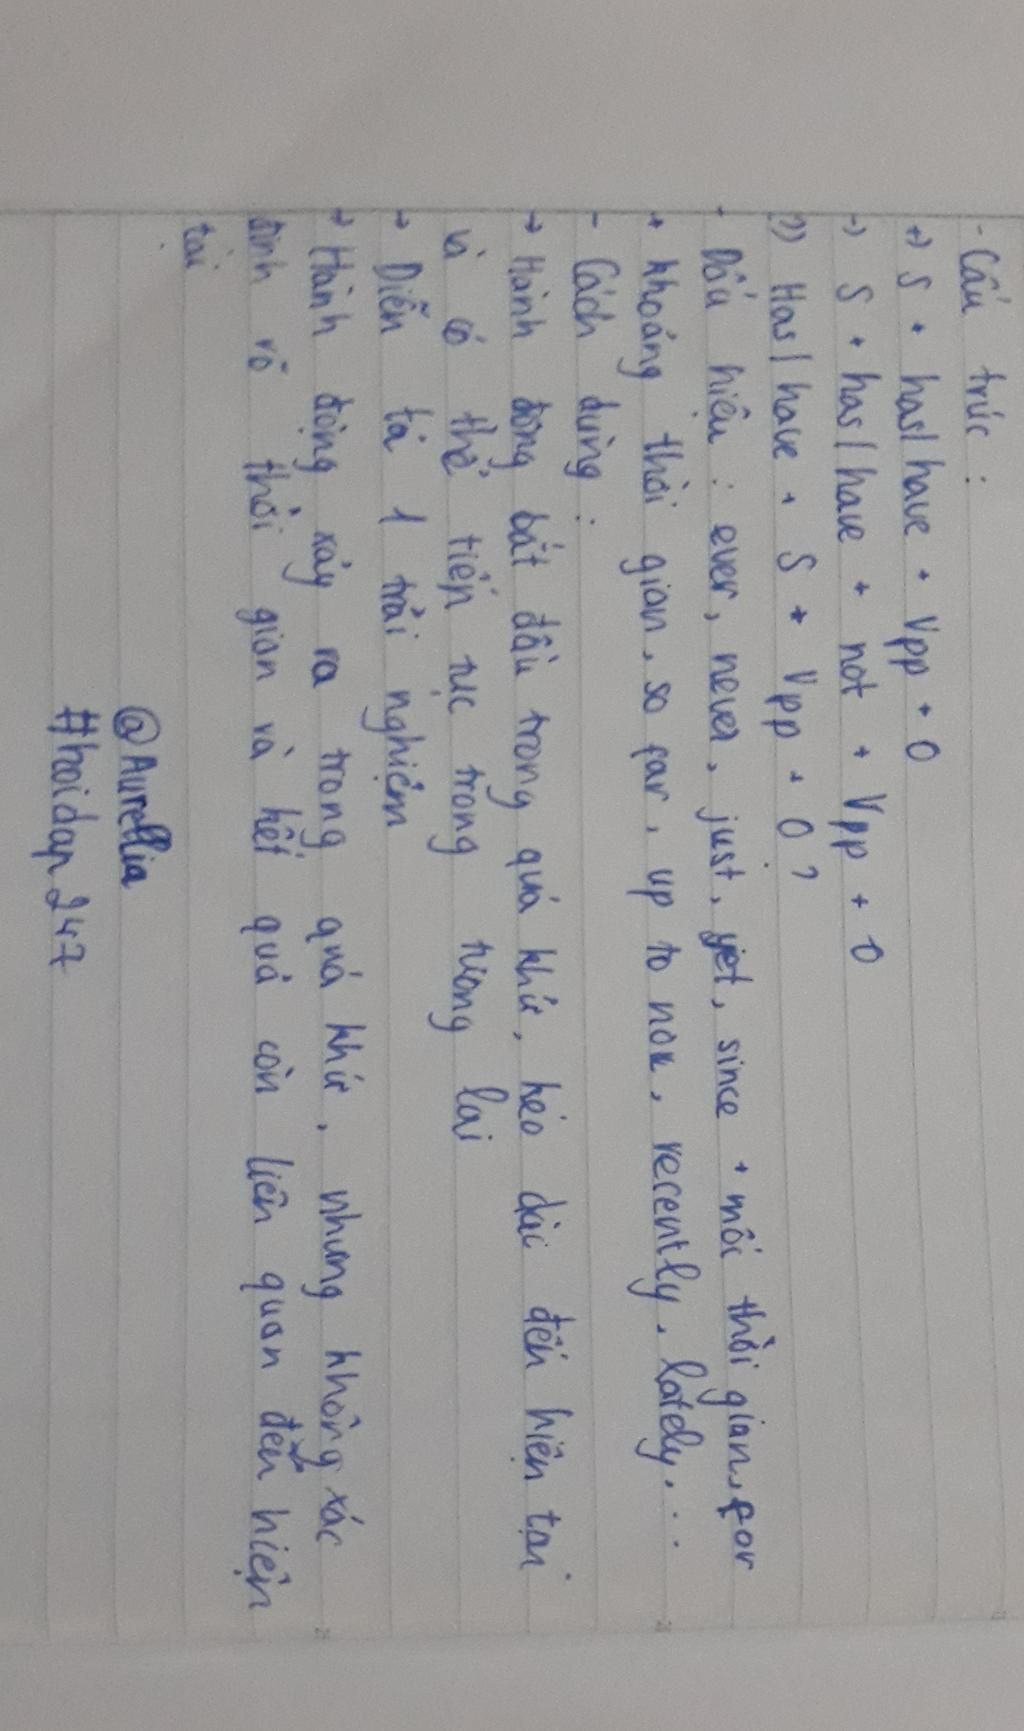 - Cấu trúc :
+) S + has/have + Vpp + O
-) S + has/have + not + Vpp + O
?) Has/have + S + Vpp + O ?
- Dấu hiệu : ever, never, just, yet, since + mốc thời gian, for
+ khoảng thời gian, so far, up to now, recently, lately, ...
- Cách dùng :
→ Hành động bắt đầu trong quá khứ, kéo dài đến hiện tại
và có thể tiếp tục trong tương lai
→ Diễn tả 1 trải nghiệm
→ Hành động xảy ra trong quá khứ, nhưng không xác
định rõ thời gian và kết quả còn liên quan đến hiện
tại
@Aurellia
#hoidap247